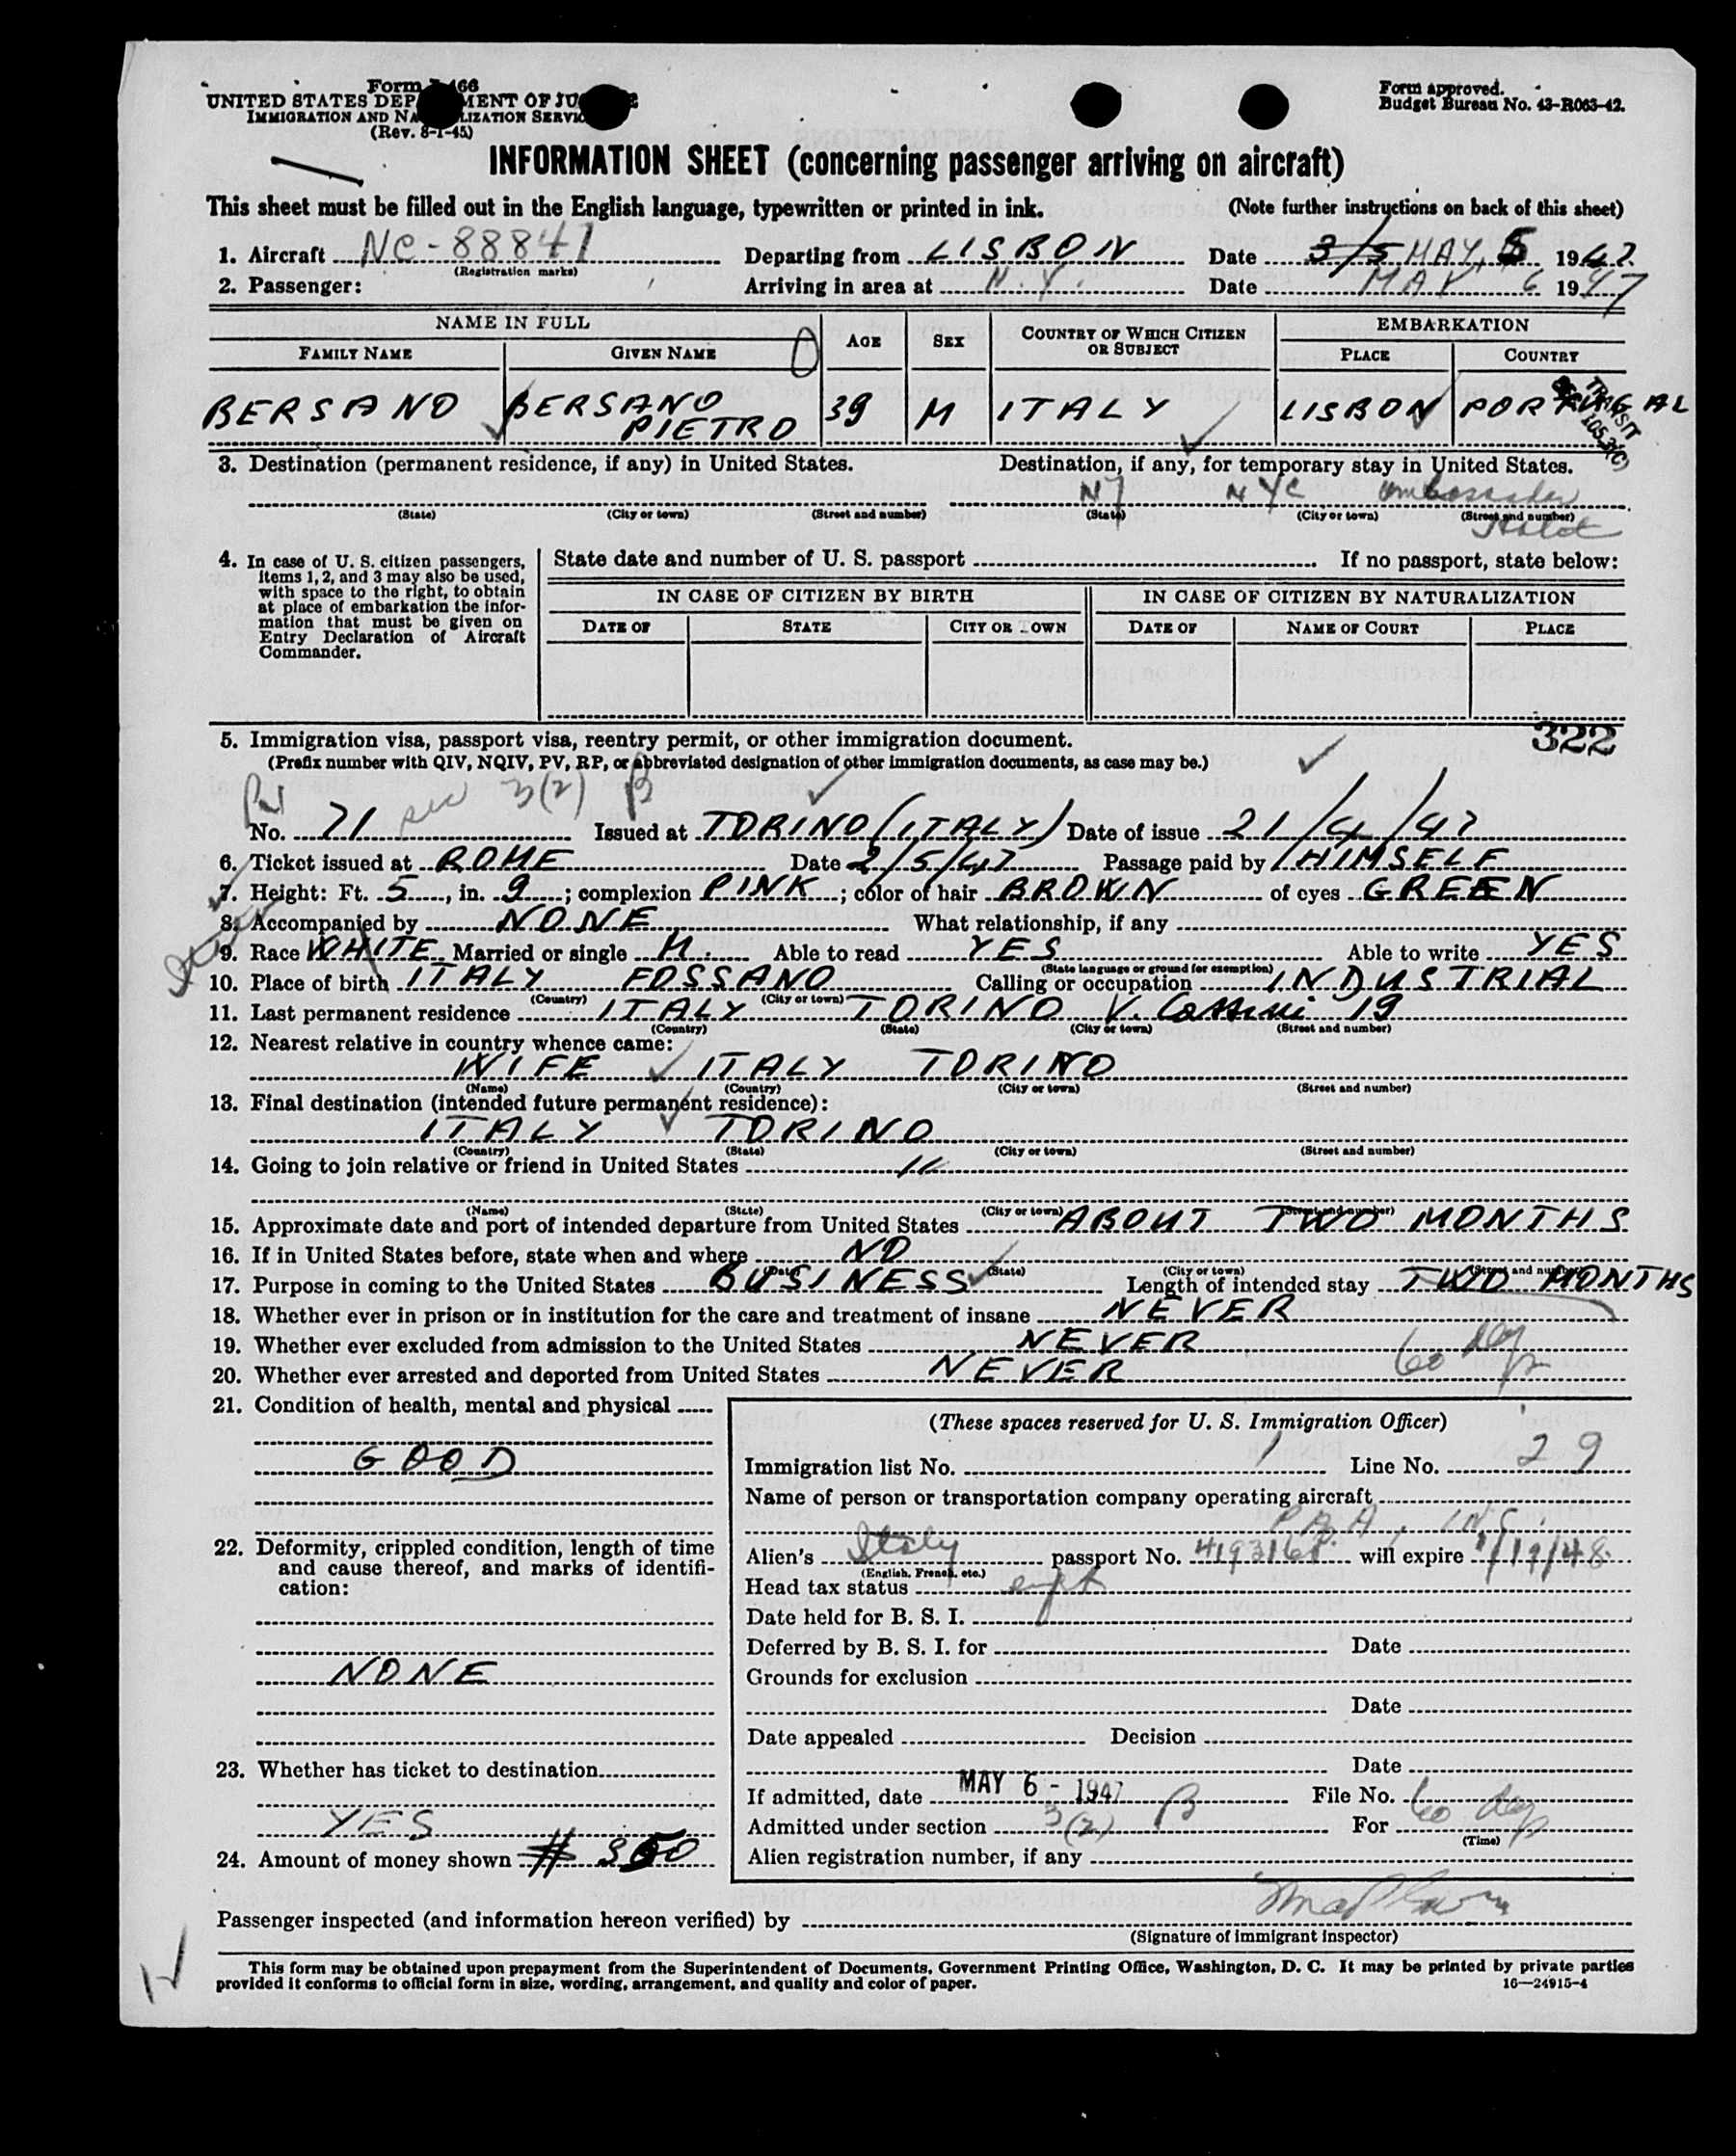 Form I-466
UNITED STATES DEPARTMENT OF JUSTICE
IMMIGRATION AND NATURALIZATION SERVICE
(Rev. 8-1-45)
Form approved.
Budget Bureau No. 43-R063-42.
INFORMATION SHEET (concerning passenger arriving on aircraft)
This sheet must be filled out in the English language, typewritten or printed in ink. (Note further instructions on back of this sheet)
1. Aircraft NC-88841 Departing from LISBON Date 3/5 MAY, 5 1947
(Registration marks)
2. Passenger: Arriving in area at N.Y. Date MAY 6 1947
NAME IN FULL
FAMILY NAME GIVEN NAME AGE SEX COUNTRY OF WHICH CITIZEN OR SUBJECT EMBARKATION
PLACE COUNTRY
BERSANO BERSANO PIETRO 39 M ITALY LISBON PORTUGAL
TRANSIT
105.3(C)
3. Destination (permanent residence, if any) in United States. Destination, if any, for temporary stay in United States.
NY NYC Ambassador Hotel
(State) (City or town) (Street and number) (State) (City or town) (Street and number)
4. In case of U. S. citizen passengers, items 1, 2, and 3 may also be used, with space to the right, to obtain at place of embarkation the information that must be given on Entry Declaration of Aircraft Commander.
State date and number of U. S. passport If no passport, state below:
IN CASE OF CITIZEN BY BIRTH IN CASE OF CITIZEN BY NATURALIZATION
DATE OF STATE CITY OR TOWN DATE OF NAME OF COURT PLACE
322
5. Immigration visa, passport visa, reentry permit, or other immigration document.
(Prefix number with QIV, NQIV, PV, RP, or abbreviated designation of other immigration documents, as case may be.)
sec 3(2) B
No. 71 Issued at TORINO (ITALY) Date of issue 21/4/47
6. Ticket issued at ROME Date 2/5/47 Passage paid by HIMSELF
7. Height: Ft. 5, in. 9; complexion PINK; color of hair BROWN of eyes GREEN
8. Accompanied by NONE What relationship, if any
9. Race WHITE Married or single M. Able to read YES Able to write YES
(State language or ground for exemption)
10. Place of birth ITALY FOSSANO Calling or occupation INDUSTRIAL
(Country) (City or town)
11. Last permanent residence ITALY TORINO V. 19
(Country) (State) (City or town) (Street and number)
12. Nearest relative in country whence came:
WIFE ITALY TORINO
(Name) (Country) (City or town) (Street and number)
13. Final destination (intended future permanent residence):
ITALY TORINO
(Country) (State) (City or town) (Street and number)
14. Going to join relative or friend in United States
(Name) (State) (City or town) (Street and number)
15. Approximate date and port of intended departure from United States ABOUT TWO MONTHS
16. If in United States before, state when and where NO
(Date) (State) (City or town) (Street and number)
17. Purpose in coming to the United States BUSINESS Length of intended stay TWO MONTHS
18. Whether ever in prison or in institution for the care and treatment of insane NEVER
19. Whether ever excluded from admission to the United States NEVER
60 days
20. Whether ever arrested and deported from United States NEVER
21. Condition of health, mental and physical
GOOD
22. Deformity, crippled condition, length of time and cause thereof, and marks of identification:
NONE
23. Whether has ticket to destination
YES
24. Amount of money shown
(These spaces reserved for U. S. Immigration Officer)
Immigration list No. 1 Line No. 29
Name of person or transportation company operating aircraft
PAA, INC.
Alien's Italy passport No. will expire 1/19/48
(English, French, etc.)
Head tax status
Date held for B. S. I.
Deferred by B. S. I. for Date
Grounds for exclusion
Date
Date appealed Decision
Date
If admitted, date MAY 6 - 1947 File No.
Admitted under section 3(2) B For 60 days
(Time)
Alien registration number, if any
Passenger inspected (and information hereon verified) by
(Signature of immigrant inspector)
This form may be obtained upon prepayment from the Superintendent of Documents, Government Printing Office, Washington, D. C. It may be printed by private parties
provided it conforms to official form in size, wording, arrangement, and quality and color of paper. 16—24915-4